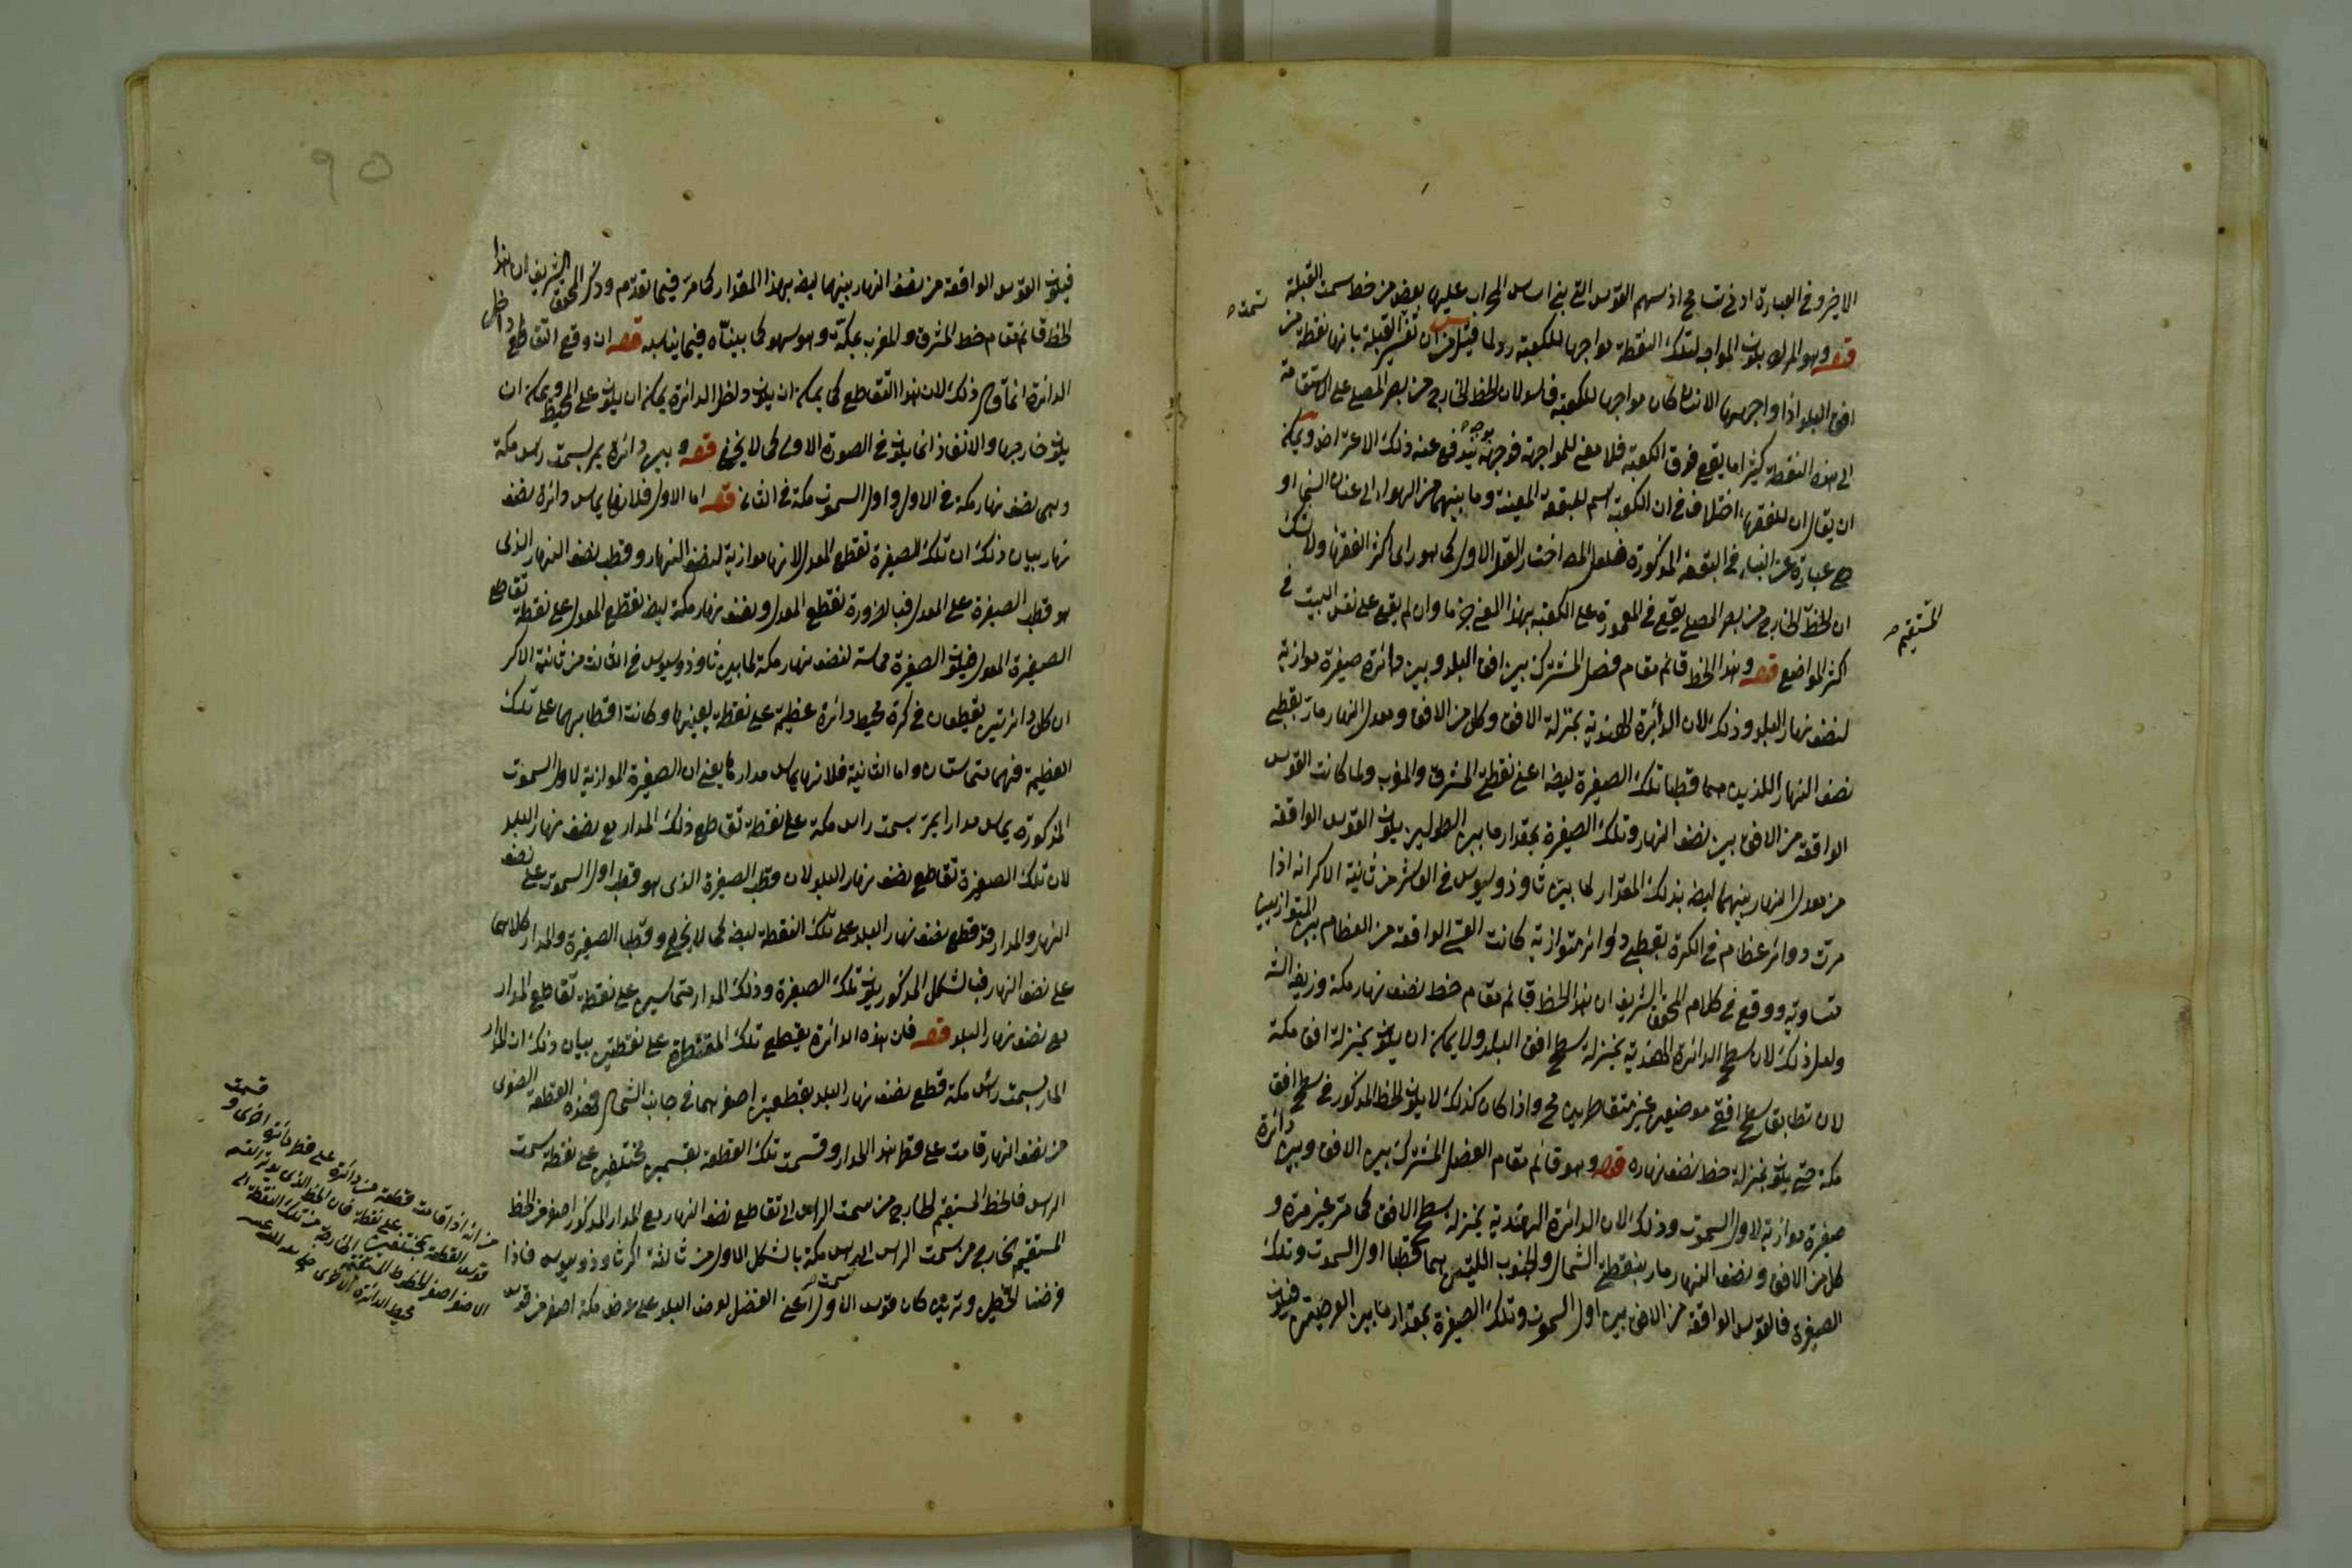 الاخير وفى العبارة ادنى تسامح اذ سهم القوس التى بنى اساس المحراب عليها بعض من خط سمت القبلة
قوله وهو المراد بكون المواجه لتلك النقطة مواجها للكعبة رد لما قيل من ان تفسير القبلة بانها نقطة من
افق البلد اذا واجهها الانسان كان مواجها للكعبة فاسد لان الخط الخارج من بصر المصلى على استقامة
الى هذه النقطة كثيرا ما يقع فوق الكعبة فلا معنى للمواجهة فوجهه بوجه يندفع عنه ذلك الاعتراض ويمكن
ان يقال ان للفقهاء اختلافا فى ان الكعبة اسم للبقعة المعينة وما بينهما من الهواء الى عنان السماء او
هى عبارة عن البناء فى البقعة المذكورة فلعل المص اختار القول الاول كما هو راى اكثر الفقهاء ولا شك
ان الخط الخارج من بصر المصلى يقع فى المعمورة على الكعبة بهذا المعنى جزما وان لم يقع على نفس البيت فى
المستقيم
اكثر المواضع قوله وهذا الخط قائم مقام فصل المشترك بين افق البلد وبين دائرة صغيرة موازية
لنصف نهار البلد وذلك لان الدائرة الهندية بمنزلة الافق وكل من الافق ومعدل النهار مار بقطبى
نصف النهار اللذين هما قطبا تلك الصغيرة ايضا اعنى نقطتى المشرق والمغرب ولما كانت القوس
الواقعة من الافق بين نصف النهار وتلك الصغيرة بمقدار ما بين الطولين يكون القوس الواقعة
من معدل النهار بينهما ايضا بذلك المقدار لما بين ثاوذوسيوس فى العاشر من ثانية الاكر انه اذا
مرت دوائر عظام فى الكرة بقطبى دوائر متوازية كانت القسى الواقعة من العظام بين المتوازيين
متساوية ووقع فى كلام المحقق الشريف ان هذا الخط قائم مقام خط نصف نهار مكة وزيفه الش
ولعل ذلك لان سطح الدائرة الهندية بمنزلة سطح افق البلد ولا يمكن ان يكون بمنزلة افق مكة
لان تطابق سطح افقى موضعين غير متقاطرين مح واذا كان كذلك لا يكون الخط المذكور فى سطح افق
مكة حتى يكون بمنزلة خط نصف نهاره قوله وهو قائم مقام الفصل المشترك بين الافق وبين دائرة
صغيرة موازية لاول السموت وذلك لان الدائرة الهندية بمنزلة سطح الافق كما مر غير مرة و
كل من الافق ونصف النهار مار بنقطتى الشمال والجنوب اللتين هما قطبا اول السموت وتلك
الصغيرة فالقوس الواقعة من الافق بين اول السموت وتلك الصغيرة بمقدار ما بين العرضين فيكون
٩٥
فيكون القوس الواقعة من نصف النهار بينهما ايضا بهذا المقدار كما مر فيما تقدم وذكر المحقق الشريف ان هذا
الخط قائم مقام خط المشرق والمغرب بمكة وهو سهو كما بيناه فيما يناسبه قوله ان وقع التقاطع داخل
الدائرة انما قال ذلك لان هذا التقاطع كما يمكن ان يكون داخل الدائرة يمكن ان يكون على المحيط ويمكن ان
يكون خارجها والانفاذ انما يكون فى الصورة الاولى كما لا يخفى قوله وبين دائرة يمر بسمت راس مكة
وهى نصف نهار مكة فى الاول واول السموت مكة فى الثانى قوله اما الاول فلانها يماس دائرة نصف
نهار بيان ذلك ان تلك الصغيرة تقطع المعدل لانها موازية لنصف النهار وقطب نصف النهار الذى
هو قطب الصغيرة على المعدل فبالضرورة تقطع المعدل ونصف نهار مكة ايضا يقطع المعدل على نقطة تقاطع
الصغيرة المعدل فيكون الصغيرة مماسة لنصف نهار مكة لما بين ثاوذوسيوس فى الثالث من ثانية الاكر
ان كل دائرتين يقطعان فى كرة محيط دائرة عظيمة على نقطة بعينها وكانت اقطابهما على تلك
العظيمة فهما متماستان واما الثانية فلانها يماس مدارها يعنى ان الصغيرة الموازية لاول السموت
المذكورة يماس مدارا يمر بسمت راس مكة على نقطة تقاطع ذلك المدار مع نصف نهار البلد
لان تلك الصغيرة تقاطع نصف نهار البلد لان قطب الصغيرة الذى هو قطب اول السموت على نصف
النهار والمدار قد قطع نصف نهار البلد على تلك النقطة ايضا كما لا يخفى وقطبا الصغيرة والمدار كلاهما
على نصف النهار فبالشكل المذكور يكون تلك الصغيرة وذلك المدار متماسين على نقطة تقاطع المدار
مع نصف نهار البلد قوله فلان هذه الدائرة يقطع تلك المقنطرة على نقطتين بيان ذلك ان المدار
المار بسمت راس مكة قطع نصف نهار البلد بقطعتين اصغرهما فى جانب الشمال فهذه القطعة الصغرى
من نصف النهار قامت على قطر هذا المدار وقسمت تلك القطعة بقسمين مختلفين على نقطة سمت
الراس فالخط المستقيم الخارج من سمت الراس الى تقاطع نصف النهار مع المدار المذكور اصغر من الخط
المستقيم الخارج من سمت الراس الى راس مكة بالشكل الاول من ثالثة اكر ثاوذوسيوس فاذا
فرضنا الخطين وترين كان قوس الاول اعنى الفضل لعرض البلد على عرض مكة اصغر من قوس
من انه اذا قامت قطعة من دائرة على قطر دائرة اخرى و قسمت
قوس القطعة بمختلفين على نقطة فان الخط الذى يوتر القسم
الاصغر اصغر الخطوط المستقيمة الخارجة من تلك النقطة الى
محيط الدائرة الاخرى